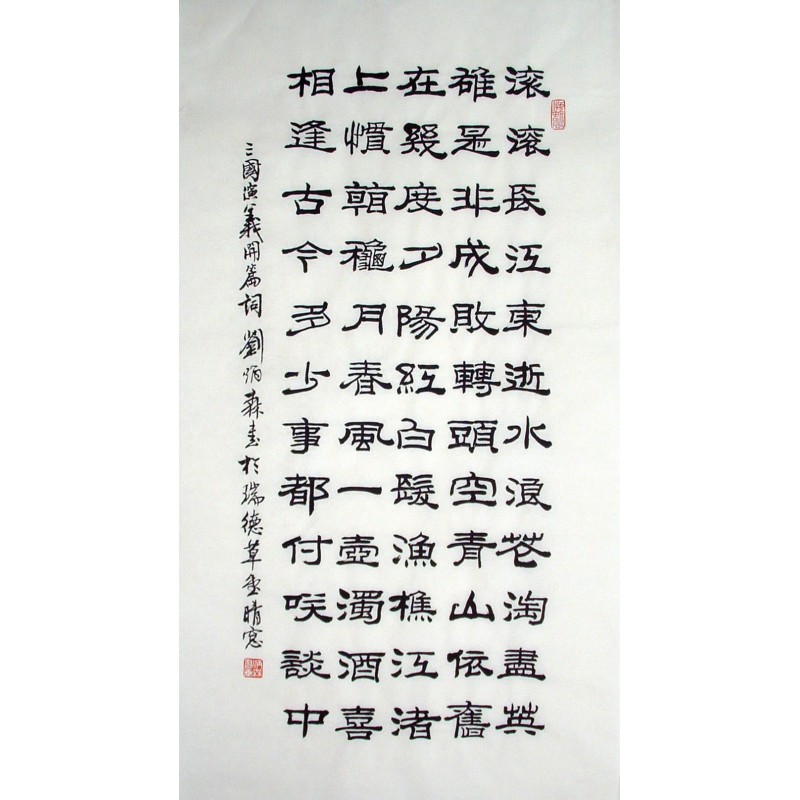 滚滚長江東逝水浪花淘盡英
雄是非成敗轉頭空青山依舊
在幾度夕陽紅白髮漁樵江渚
上慣看秋月春風一壺濁酒喜
相逢古今多少事都付咲談中
三國演義開篇詞 劉炳森書於瑞德草堂晴窓